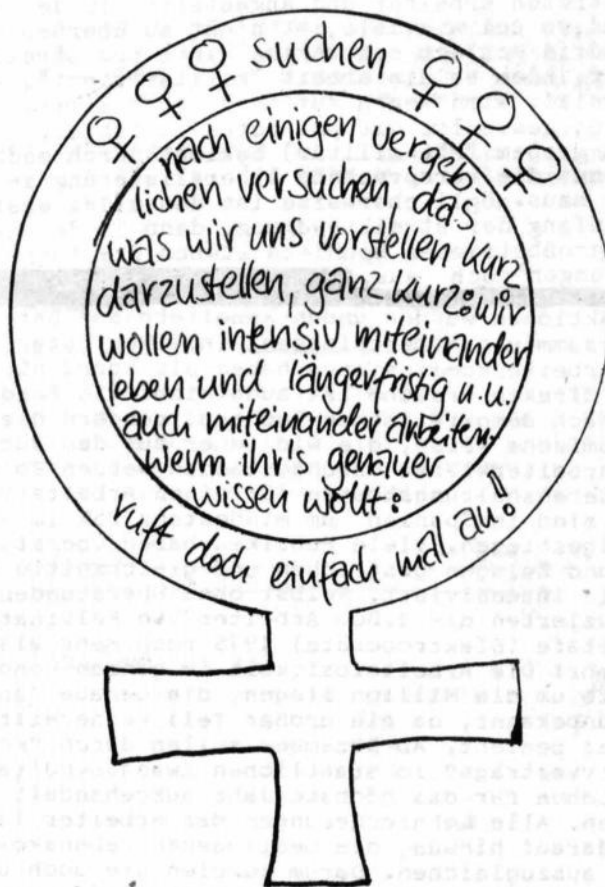 ♀ ♀ ♀ suchen ♀ ♀ ♀
nach einigen vergeb-
lichen versuchen, das
was wir uns vorstellen kurz
darzustellen, ganz kurz: wir
wollen intensiv miteinander
leben und längerfristig u.U.
auch miteinander arbeiten.
Wenn ihr's genauer
wissen wollt:
ruft doch einfach mal an!!